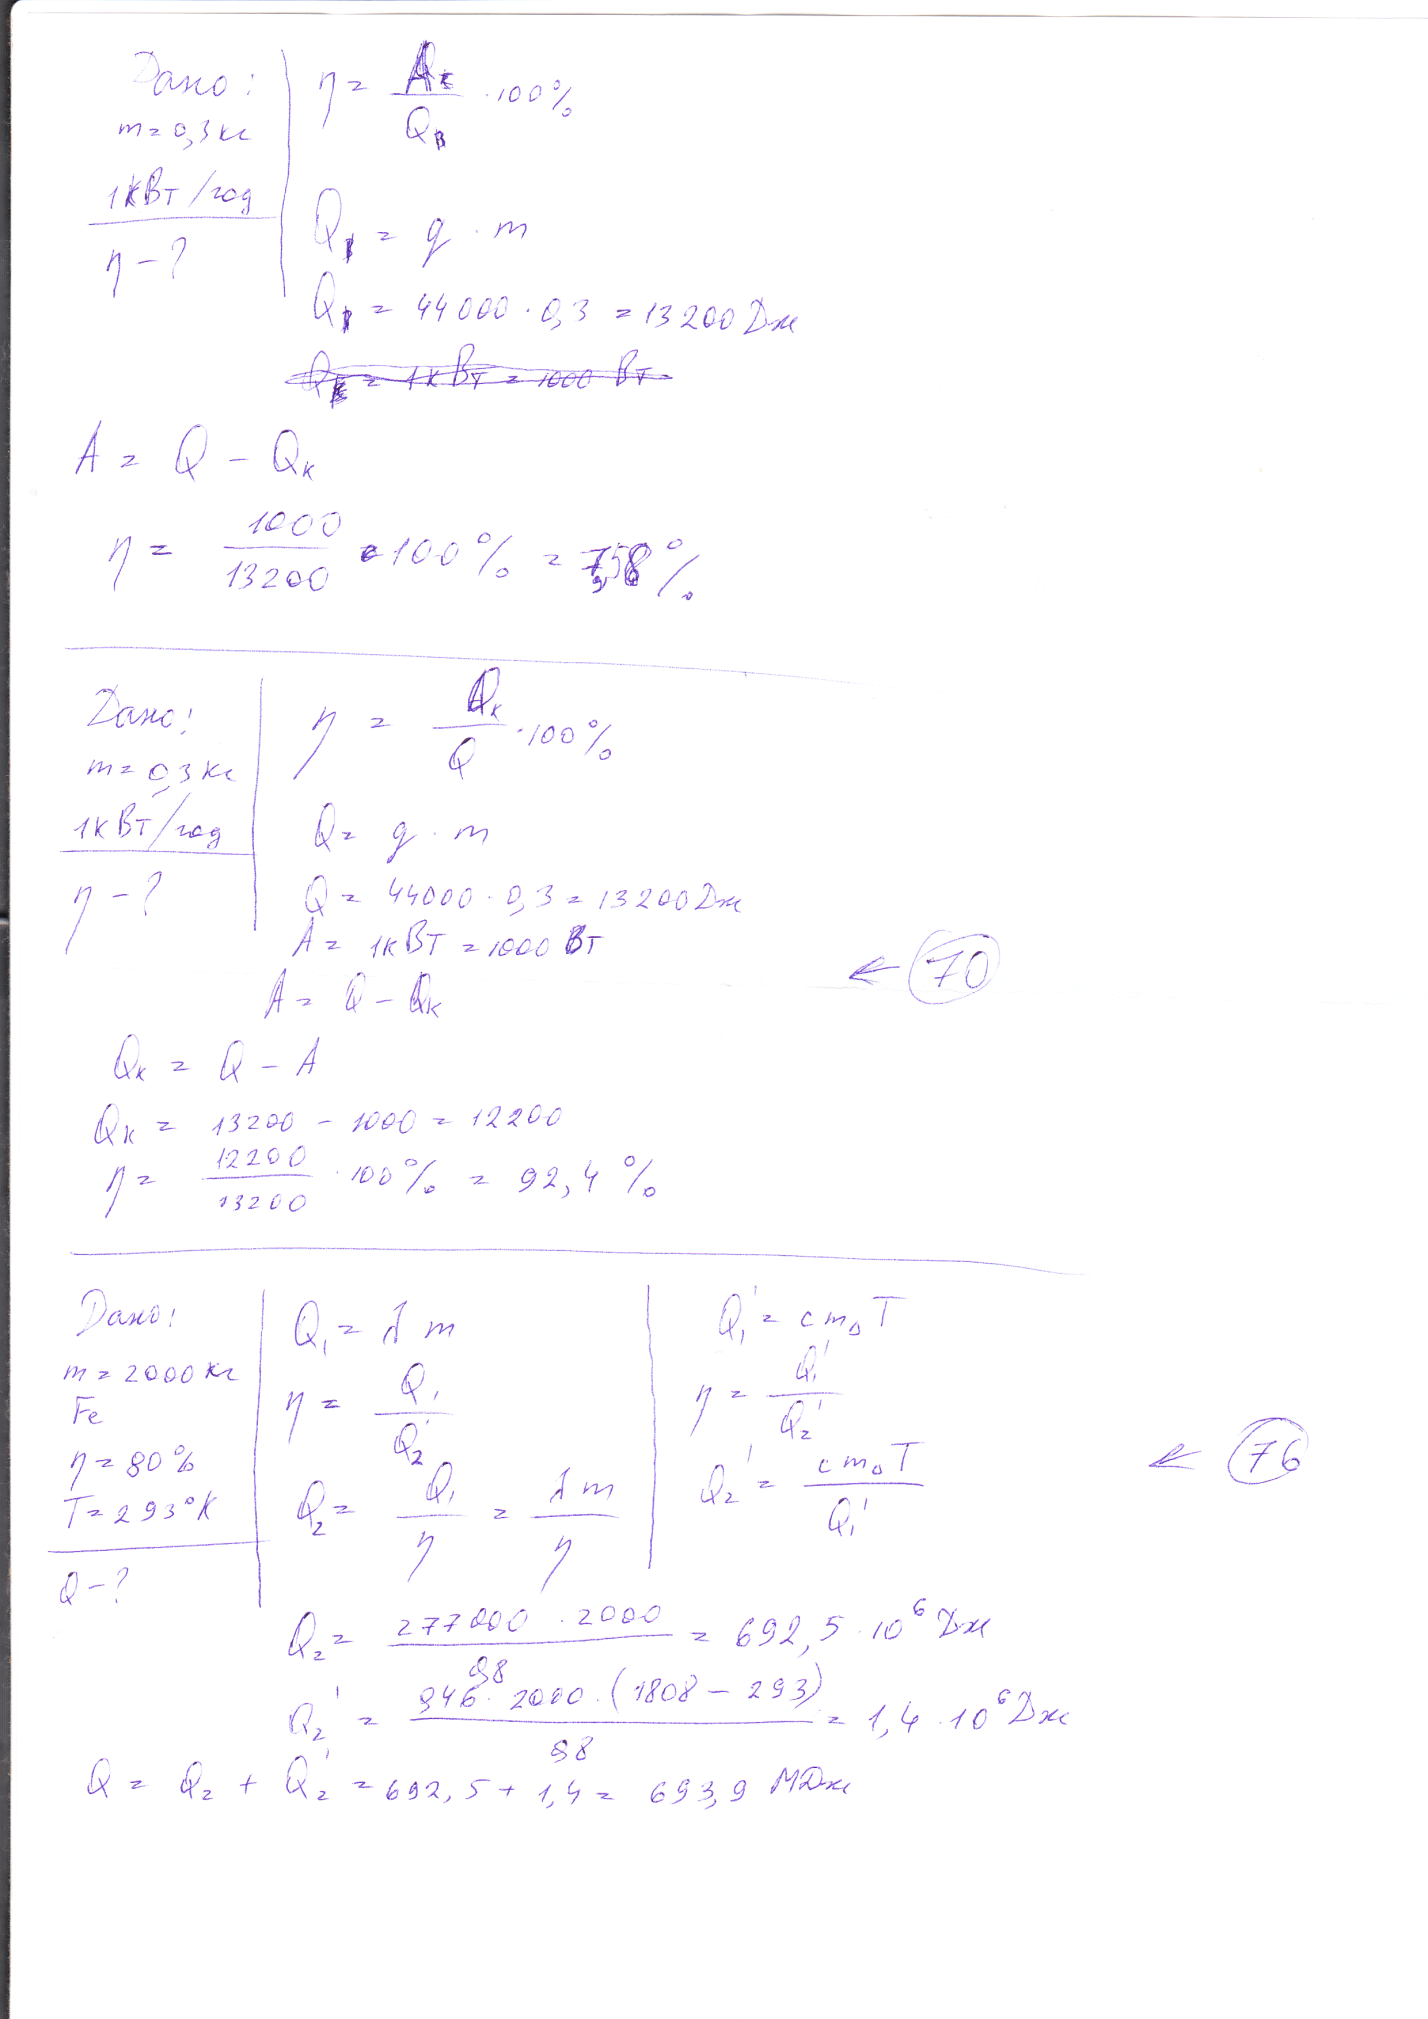 Дано:
m = 0,3 кг
1кВт/год
η - ?
η = Aк / Qв · 100%
Q1 = q · m
Q1 = 44000 · 0,3 = 13200 Дж
Qк = 1кВт = 1000 Вт
A = Q - Qк
η = 1000 / 13200 · 100% = 7,58%
Дано:
m = 0,3 кг
1кВт/год
η - ?
η = Qк / Q · 100%
Q = q · m
Q = 44000 · 0,3 = 13200 Дж
A = 1кВт = 1000 Вт
← 70
A = Q - Qк
Qк = Q - A
Qк = 13200 - 1000 = 12200
η = 12200 / 13200 · 100% = 92,4 %
Дано:
m = 2000 кг
Fe
η = 80%
T = 293°K
Q - ?
Q₁ = λ m
η = Q₁ / Q₂'
Q₂ = Q₁ / η = λ m / η
Q₁' = c m Δ T
η = Q₁' / Q₂'
Q₂' = c m Δ T / Q₁'
← 76
Q₂ = 277000 · 2000 / 0,8 = 692,5 · 10⁶ Дж
Q₂' = 346 · 2000 · (1808 - 293) / 0,8 = 1,4 · 10⁶ Дж
Q = Q₂ + Q₂' = 692,5 + 1,4 = 693,9 МДж